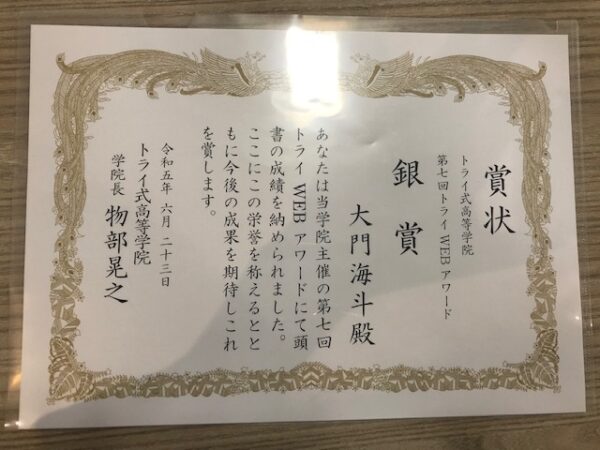 賞状
トライ式高等学院
第七回トライ WEB アワード
銀賞
大門海斗殿
あなたは当学院主催の第七回
トライ WEB アワードにて頭
書の成績を納められました。
ここにこの栄誉を称えるとと
もに今後の成果を期待しこれ
を賞します。
令和五年 六月 二十三日
トライ式高等学院
学院長 物部晃之